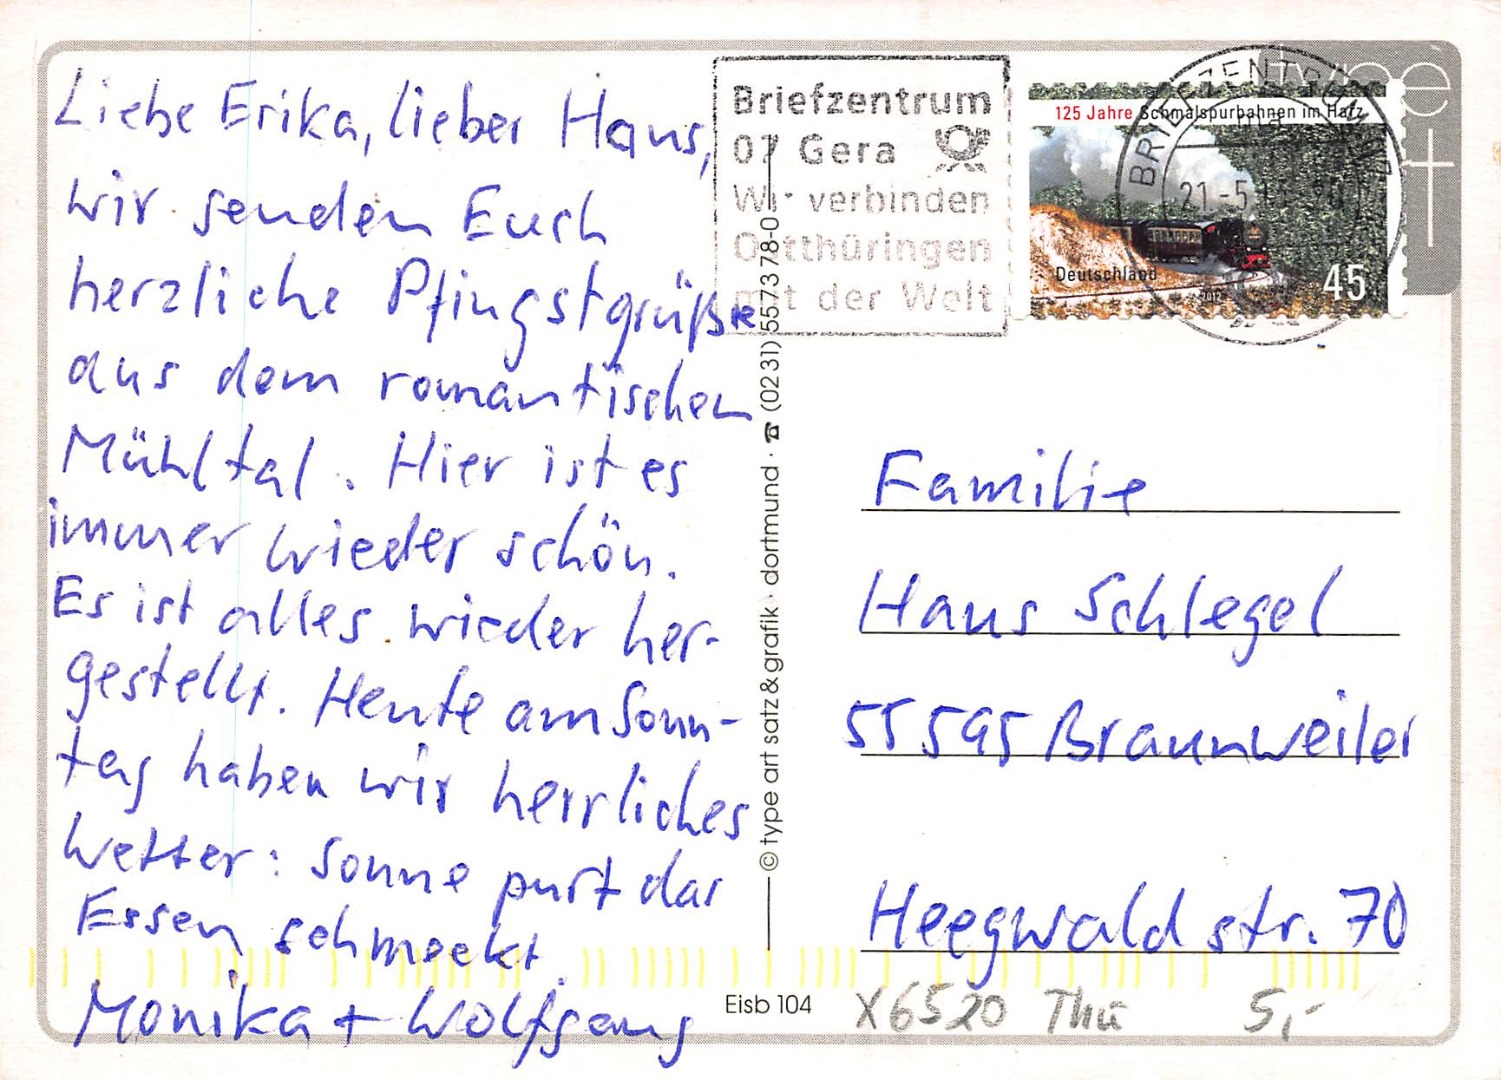 Liebe Erika, lieber Hans,
wir senden Euch
herzliche Pfingstgrüße
aus dem romantischen
Mühltal. Hier ist es
immer wieder schön.
Es ist alles wieder her-
gestellt. Heute am Sonn-
tag haben wir herrliches
Wetter: Sonne purt das
Essen schmeckt.
Monika + Wolfgang
Briefzentrum
07 Gera
Wir verbinden
Ostthüringen
mit der Welt
125 Jahre Schmalspurbahnen im Harz
Deutschland
2012
45
BRIEFZENTRUM
21.-5.
type
art
© type art satz & grafik · dortmund · ☎ (0231) 557378-0
Familie
Hans Schlegel
55595 Braunweiler
Heegwaldstr. 70
Eisb 104
X6520 Thü 5,-